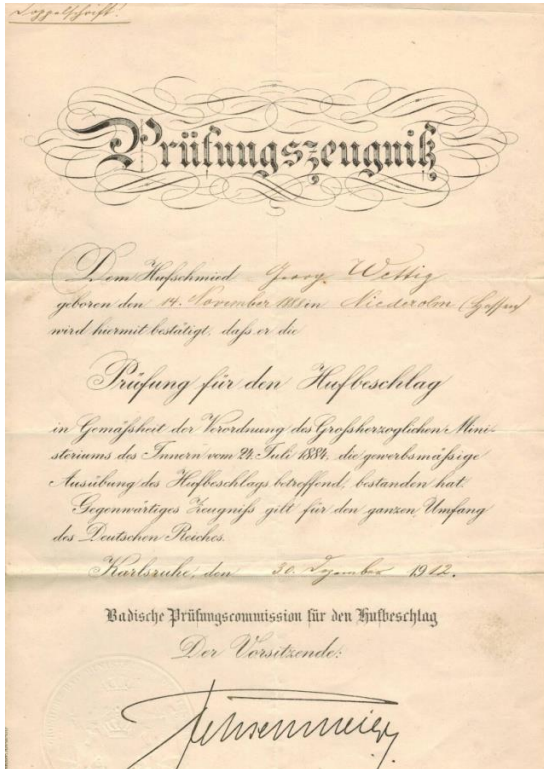 Doppelschrift!
Prüfungszeugniß
Dem Hufschmied Georg Wettig
geboren den 14. November 1888 in Niederolm (Hessen)
wird hiermit bestätigt, daß er die
Prüfung für den Hufbeschlag
in Gemäßheit der Verordnung des Großherzoglichen Mini-
steriums des Innern vom Juli 1884, die gewerbsmäßige
Ausübung des Hufbeschlags betreffend, bestanden hat.
Gegenwärtiges Zeugniß gilt für den ganzen Umfang
des Deutschen Reiches.
Karlsruhe, den 30. Dezember 1912.
Badische Prüfungscommission für den Hufbeschlag
Der Vorsitzende:
Fehsenmeier